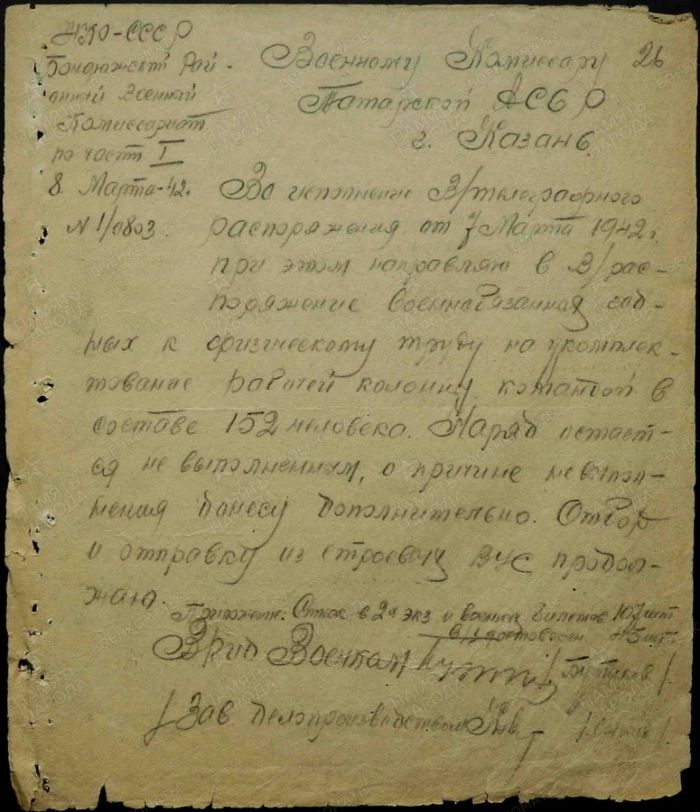 НКО-СССР
Бондюжский Рай-
онный Военный
Комиссариат
по части I
8 Марта-42г.
N 1/0803.
26
Военному Комиссару
Татарской АССР
г. Казань
Во исполнение В/телеграфного
распоряжения от 7 Марта 1942г.
при этом направляю в В/рас-
поряжение военнообязанных год-
ных к физическому труду на укомплек-
тование рабочей колонны командой в
составе 152 человека. Наряд остает-
ся не выполненным, о причине невыпол-
нения донесу дополнительно. Отбор
и отправку из строевых ВУС продол-
жаю.
Приложение: Список в 2х экз и военных билетов 107 шт
45 шт.
Врид Военком
/Зав Делопроизводством